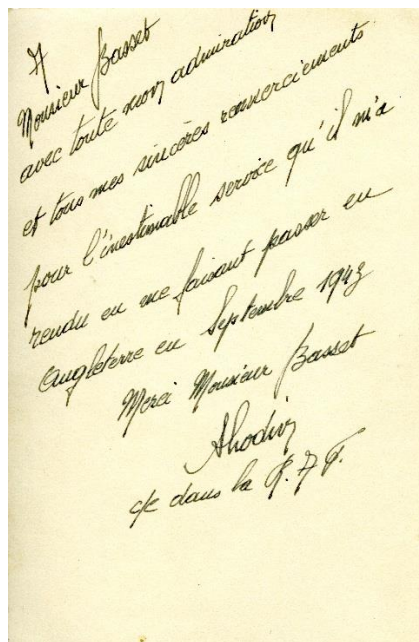 A
Monsieur Basset
avec toute mon admiration
et tous mes sincères remerciements
pour l'inestimable service qu'il m'a
rendu en me faisant passer en
Angleterre en Septembre 1943
Merci Monsieur Basset
c/c dans la R.A.F.